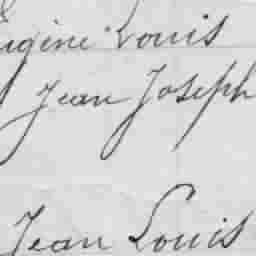 Eugène Louis
Jean Joseph
Jean Louis